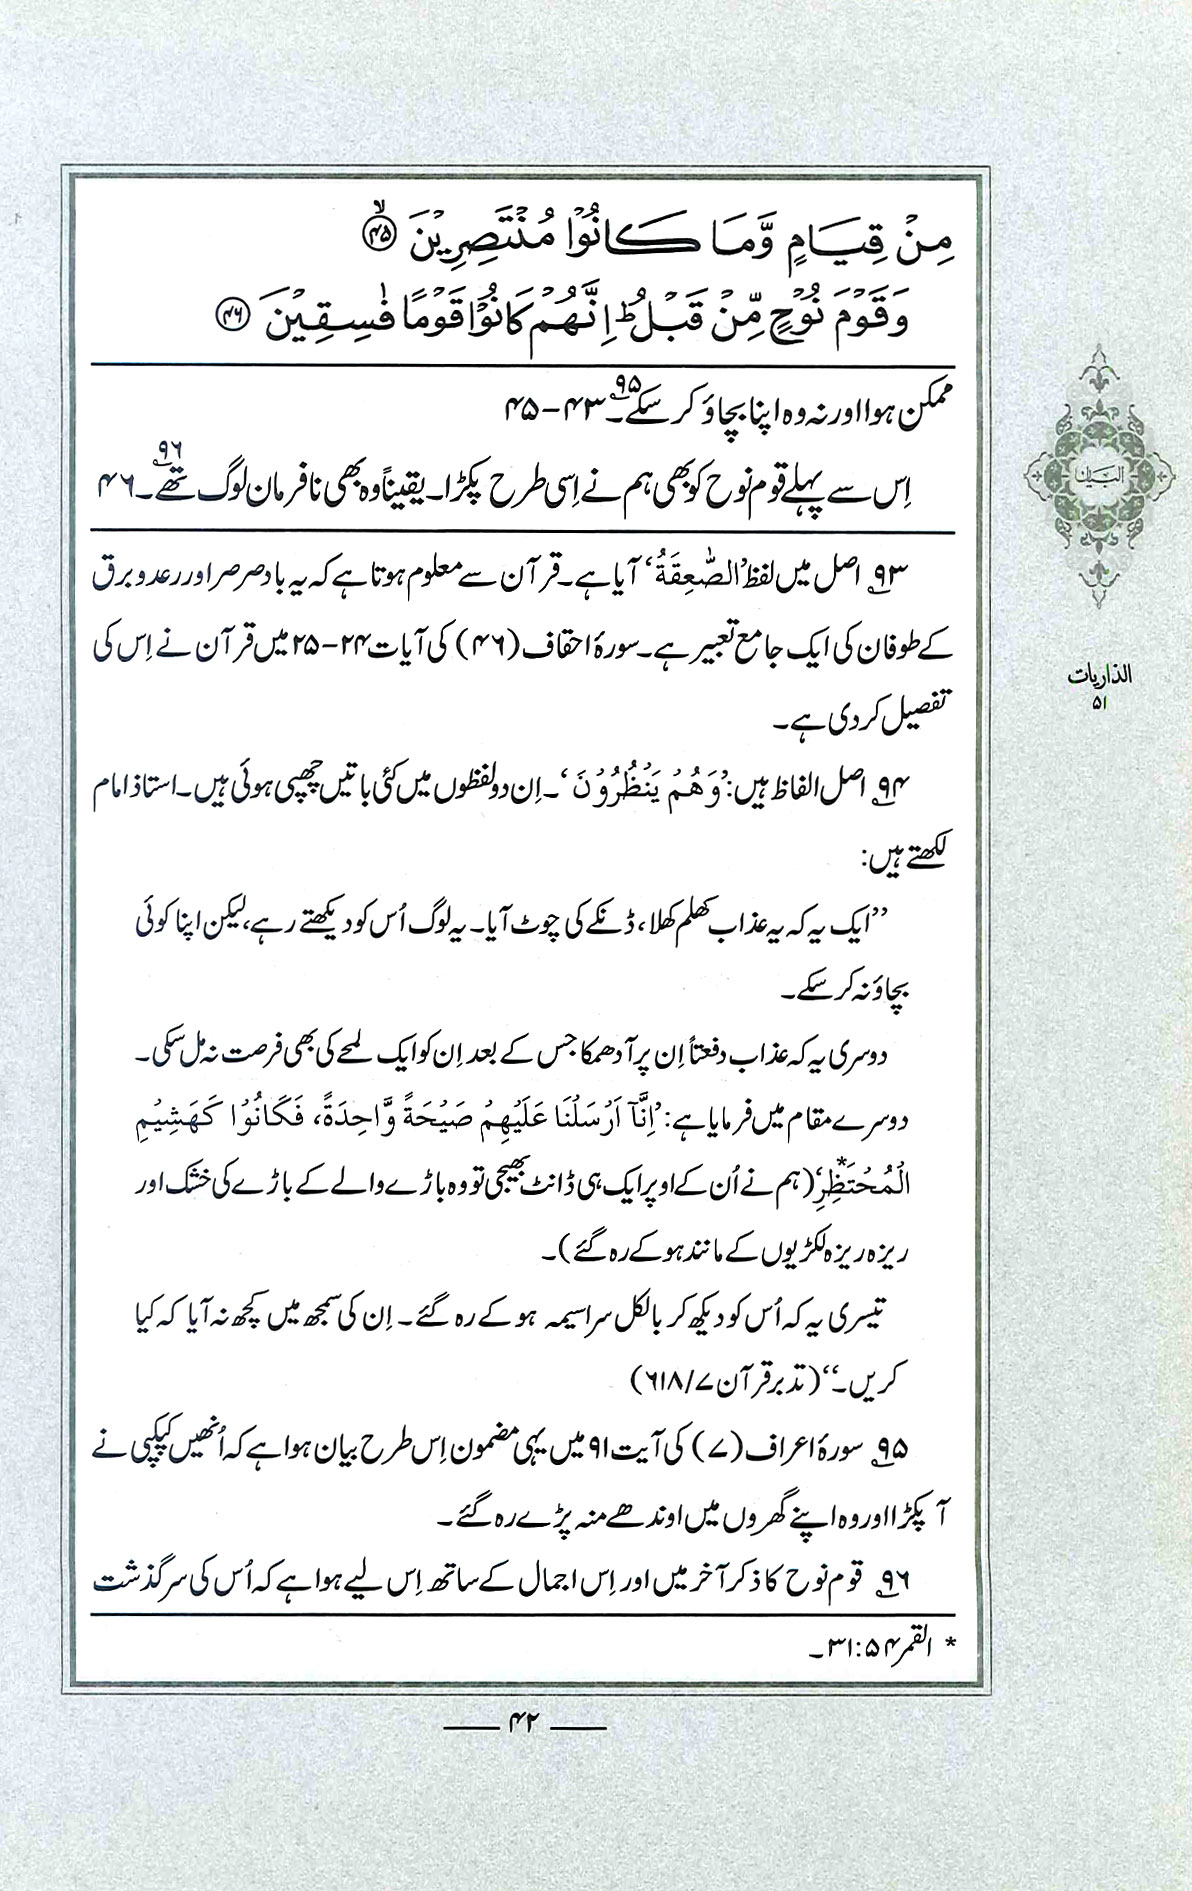 مِنْ قِيَامٍ وَّمَا كَانُوْا مُنْتَصِرِيْنَ ﴿۴۵﴾ۙ
وَقَوْمَ نُوْحٍ مِّنْ قَبْلُ ؕ اِنَّهُمْ كَانُوْا قَوْمًا فٰسِقِيْنَ ﴿۴۶﴾
ممکن ہوا اور نہ وہ اپنا بچاؤ کر سکے۔ ۹۵ ۴۳-۴۵
اِس سے پہلے قوم نوح کو بھی ہم نے اِسی طرح پکڑا۔ یقیناً وہ بھی نافرمان لوگ تھے۔ ۹۶ ۴۶
۹۳ اصل میں لفظ ’الصّٰعِقَةُ‘ آیا ہے۔ قرآن سے معلوم ہوتا ہے کہ یہ باد صرصر اور رعد و برق
کے طوفان کی ایک جامع تعبیر ہے۔ سورۂ احقاف (۴۶) کی آیات ۲۴-۲۵ میں قرآن نے اِس کی
تفصیل کر دی ہے۔
۹۴ اصل الفاظ ہیں: ’وَهُمْ يَنْظُرُوْنَ‘۔ اِن دو لفظوں میں کئی باتیں چھپی ہوئی ہیں۔ استاذ امام
لکھتے ہیں:
’’ایک یہ کہ یہ عذاب کھلم کھلا، ڈنکے کی چوٹ آیا۔ یہ لوگ اُس کو دیکھتے رہے، لیکن اپنا کوئی
بچاؤ نہ کر سکے۔
دوسری یہ کہ عذاب دفعتاً اِن پر آ دھمکا جس کے بعد اِن کو ایک لمحے کی بھی فرصت نہ مل سکی۔
دوسرے مقام میں فرمایا ہے: ’اِنَّآ اَرْسَلْنَا عَلَيْهِمْ صَيْحَةً وَّاحِدَةً، فَكَانُوْا كَهَشِيْمِ
الْمُحْتَظِرِ*‘ (ہم نے اُن کے اوپر ایک ہی ڈانٹ بھیجی تو وہ باڑے والے کے باڑے کی خشک اور
ریزہ ریزہ لکڑیوں کے مانند ہو کے رہ گئے)۔
تیسری یہ کہ اُس کو دیکھ کر بالکل سراسیمہ ہو کے رہ گئے۔ اِن کی سمجھ میں کچھ نہ آیا کہ کیا
کریں۔‘‘ (تدبر قرآن ۷/ ۶۱۸)
۹۵ سورۂ اعراف (۷) کی آیت ۹۱ میں یہی مضمون اِس طرح بیان ہوا ہے کہ اُنھیں کپکپی نے
آ پکڑا اور وہ اپنے گھروں میں اوندھے منہ پڑے رہ گئے۔
۹۶ قوم نوح کا ذکر آخر میں اور اِس اجمال کے ساتھ اِس لیے ہوا ہے کہ اُس کی سرگذشت
* القمر ۵۴: ۳۱۔
۴۲
البیان
الذاریات
۵۱